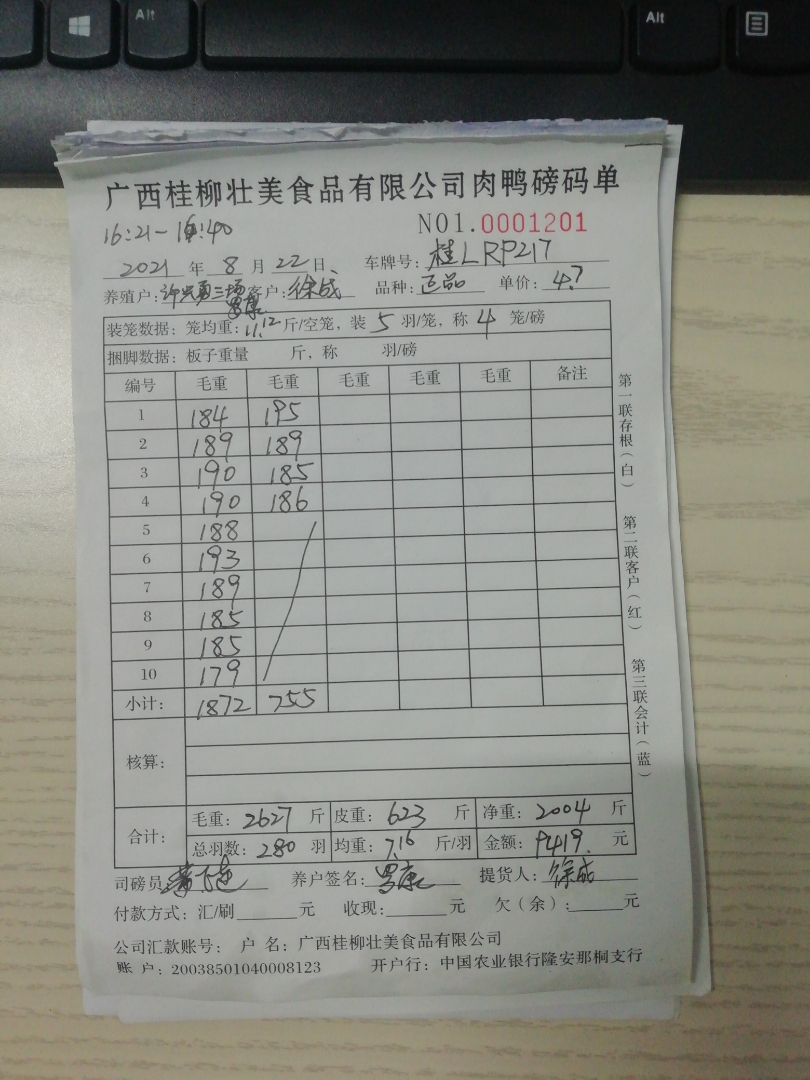 Alt
Alt
广西桂柳壮美食品有限公司肉鸭磅码单
16:21-16:40
NO1.0001201
2021年8月22日
车牌号：桂LRP217
养殖户：许兴勇三场 罗康 客户：徐成 品种：正品 单价：4.7
装笼数据：笼均重：11.12斤/空笼，装5羽/笼，称4笼/磅
捆脚数据：板子重量 斤，称 羽/磅
编号 毛重 毛重 毛重 毛重 毛重 备注
1 184 195
2 189 189
3 190 185
4 190 186
5 188
6 193
7 189
8 185
9 185
10 179
小计： 1872 755
核算：
合计： 毛重：2627斤 皮重：623斤 净重：2004斤
总羽数：280羽 均重：7.16斤/羽 金额：9419.元
司磅员 养户签名：罗康 提货人：徐成
付款方式：汇/刷 元 收现： 元 欠（余）： 元
公司汇款账号： 户 名：广西桂柳壮美食品有限公司
账 户：20038501040008123 开户行：中国农业银行隆安那桐支行
第一联存根（白）
第二联客户（红）
第三联会计（蓝）